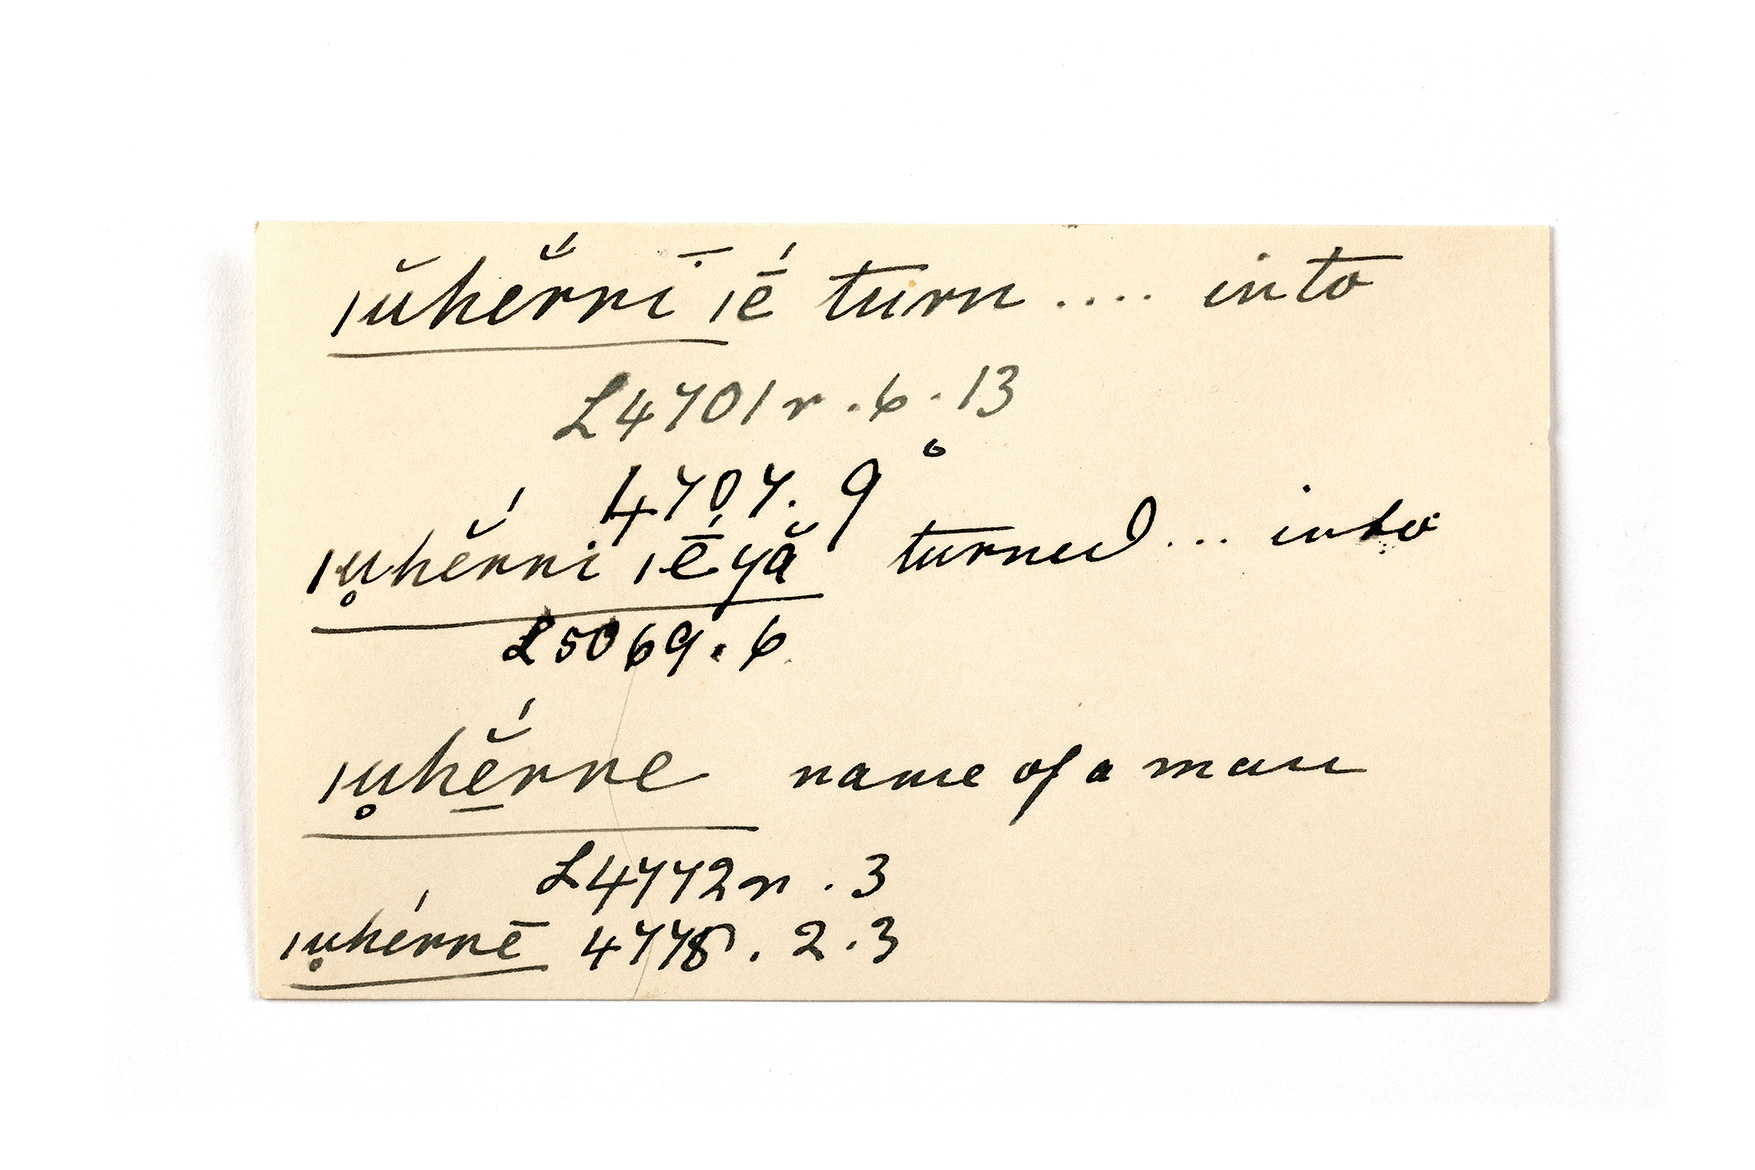 ǀŭhĕ́rrī ǀḗ turn .... into
L4701r.6.13
4707.9°
ǀṷhĕ́rri ǀḗyă turned ... into
L5069.6
ǀṷhĕ́rre name of a man
L4772r.3
ǀṷhérrē 4778.2.3